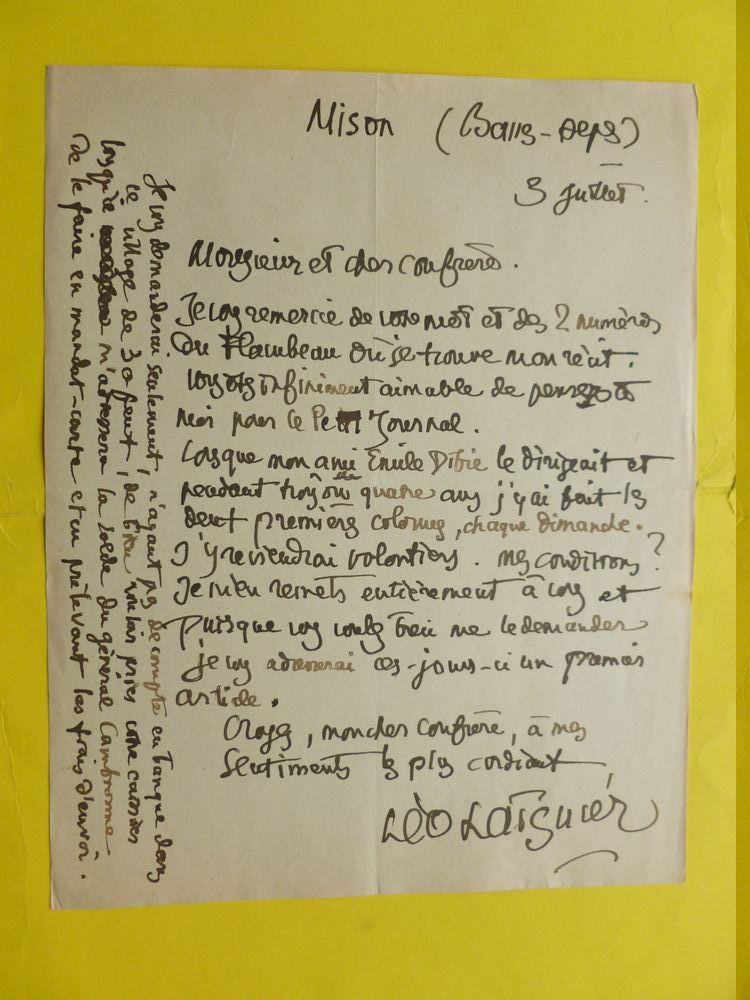 Mison (Basses-Alpes)
3 Juillet.
Monsieur et cher confrère.
Je vous remercie de votre mot et des 2 numéros
du Flambeau où se trouve mon récit.
Vous êtes infiniment aimable de penser à
moi pour le Petit Journal.
Lorsque mon ami Emile Ditie le dirigeait et
pendant trois ou quatre ans j'y ai fait les
deux premières colonnes, chaque dimanche.
J'y reviendrai volontiers. Mes conditions?
Je m'en remets entièrement à vous et
puisque vous voulez bien me le demander
je vous adresserai ces-jours-ci un premier
article.
Croyez, mon cher confrère, à mes
sentiments les plus cordiaux,
Léo Larguier
Je vous demanderai seulement, n'ayant pas de compte en banque dans
ce village de 30 feux, de bien vouloir prier votre caissier
lorsqu'il m'adressera la solde du général Cambronne
de le faire en mandat-carte et en prélevant les frais d'envoi.